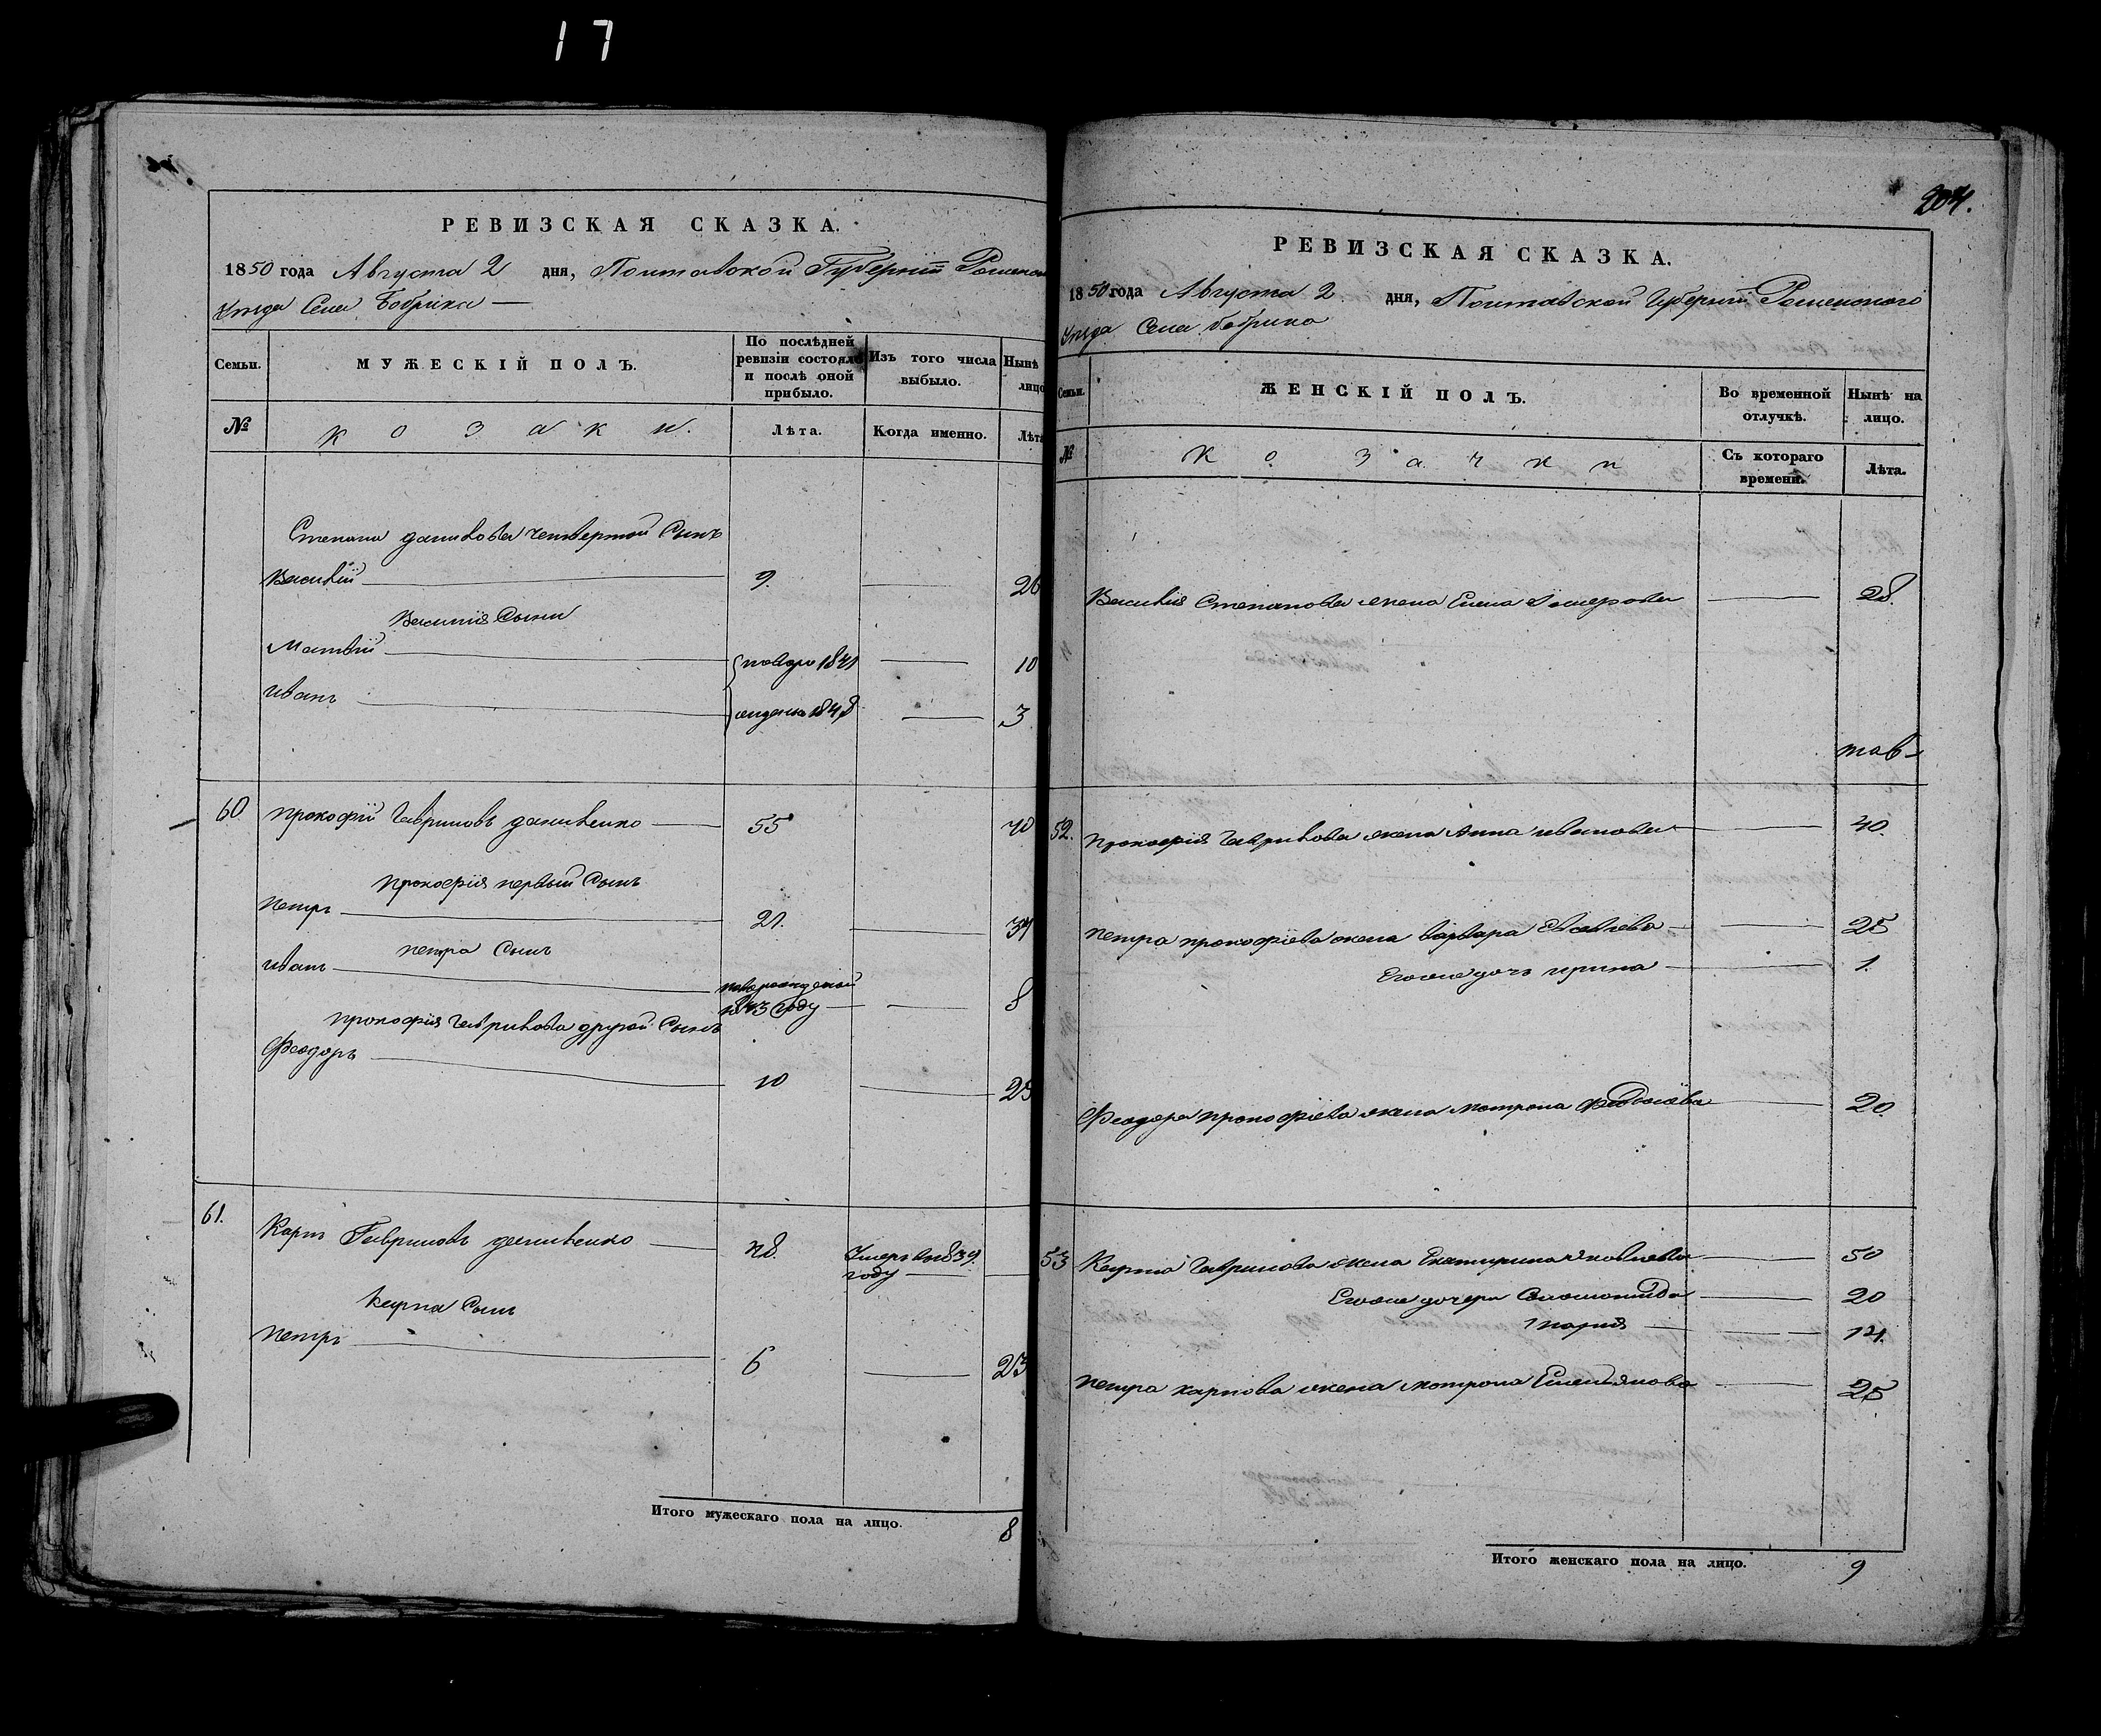 17
РЕВИЗСКАЯ СКАЗКА.
1850 года Августа 2 дня, Полтавской Губернiи Роменско
Уезда Села Бобрика
Семьи.
МУЖЕСКІЙ ПОЛЪ.
По послѣдней ревизіи состояло и послѣ оной прибыло.
Изъ того числа выбыло.
Нынѣ лицо
№
козаки.
Лѣта.
Когда именно.
Лѣта
Степана данилова четвертой Сынъ
Василiй 9. 26
Василiя Сыны
Матвiй новоро 1841 10
иванъ жденъ 1848 3
60 прокофiй Гавриловъ даниленко 55 70
прокофiя первый Сынъ
петръ 21. 37
петра Сынъ
иванъ новорожденой 1843 году 8
прокофiя Гаврилова другой Сынъ
Феодоръ 10 25
61. Карпъ Гавриловъ даниленко 48. Умеръ въ 1839. году
карпа Сынъ
петръ 6 23
Итого мужескаго пола на лицо. 8
204.
РЕВИЗСКАЯ СКАЗКА.
1850 года Августа 2 дня, Полтавской Губернiи Роменского
Уезда Села бобрика
Семьи.
ЖЕНСКІЙ ПОЛЪ.
Во временной отлучкѣ.
Нынѣ на лицо.
№
козачки
Съ котораго времени.
Лѣта.
Василiя Степанова жена Елена 28.
52. прокофiя Гаврилова жена Анна иванова 40.
петра прокофiева жена варвара 25
Егоже дочь ирина 1.
Феодора прокофiева жена мотрона 20.
53 Карпа Гаврилова жена Екатирина Яковлева 50
Егоже дочери Соломонида 20
мария 14.
петра карпова жена мотрона Емельянова 25
Итого женскаго пола на лицо. 9